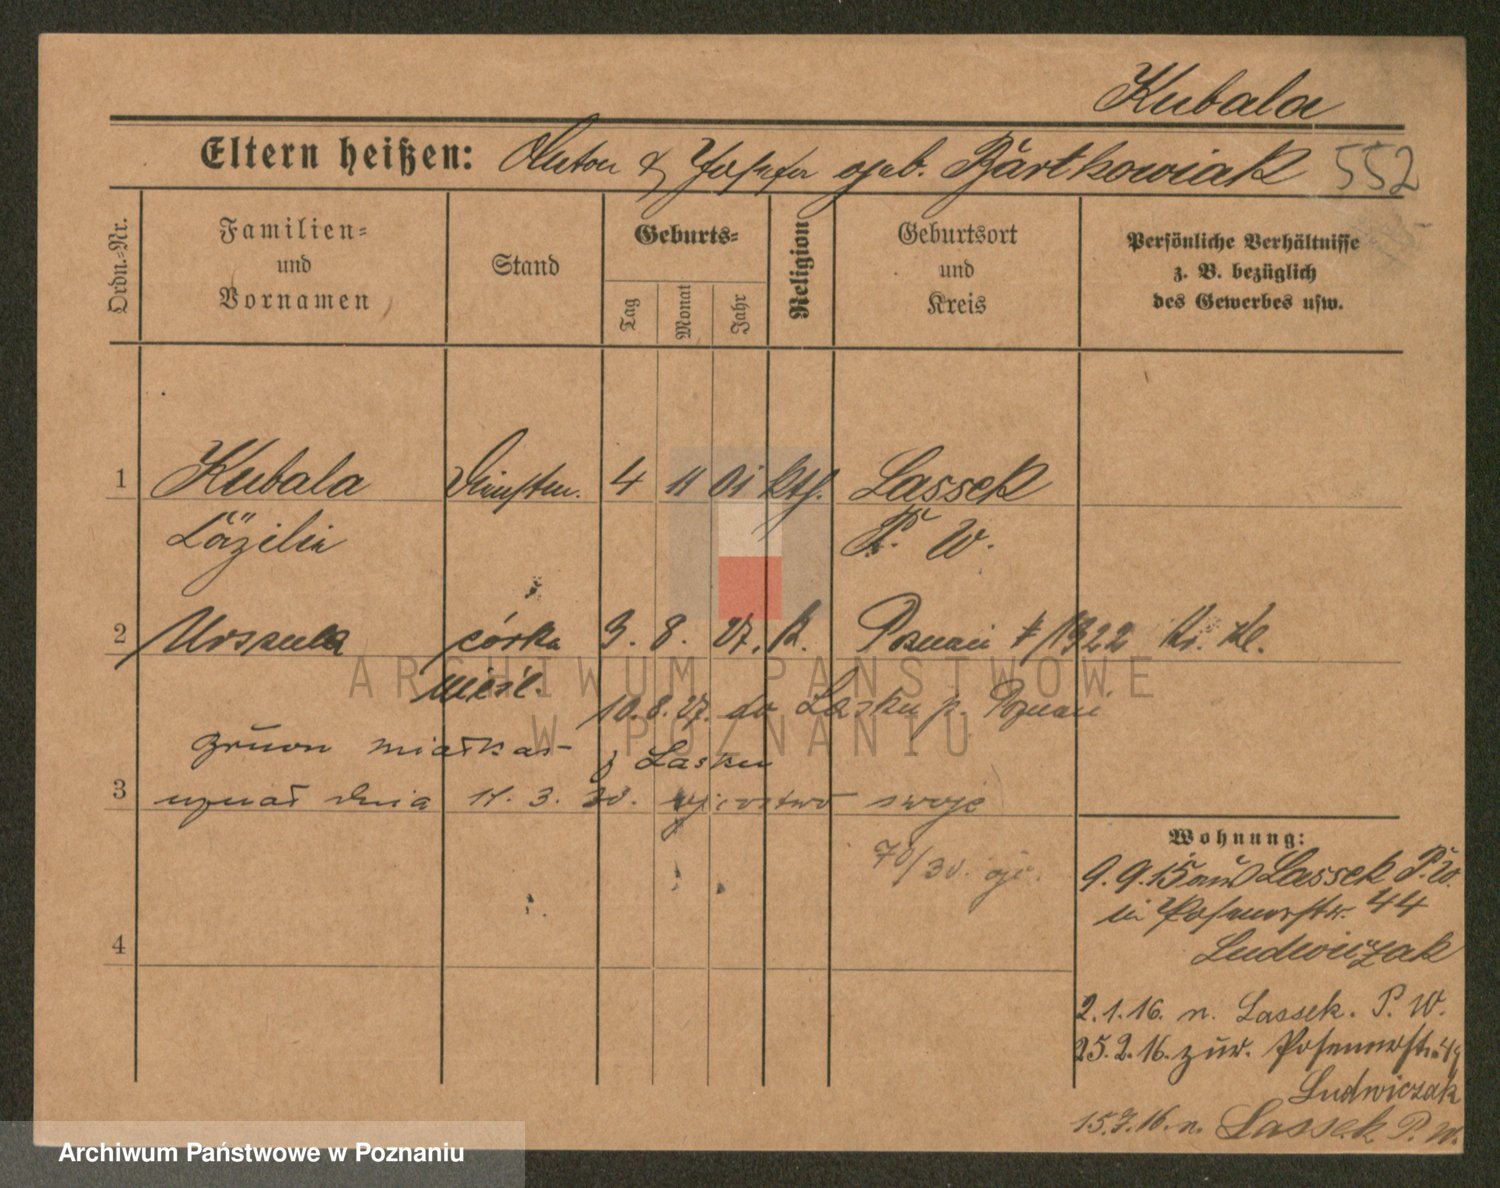 Kubala
Eltern heißen: Anton & Josefa geb. Bartkowiak 552
Ordn.-Nr.
Familien- und Vornamen
Stand
Geburts-
Tag
Monat
Jahr
Religion
Geburtsort und Kreis
Persönliche Verhältnisse z. B. bezüglich des Gewerbes usw.
1 Kubala Dienstm. 4 11 01 kth. Lassek
Cäzilie P. W.
2 Urszula córka 3. 8. 27. k. Poznań # 1922
nieśl. 10.8.27. do Lasku p. Poznań
z Lasku
3 uznał dnia 3. 30. ojcostwo swoje
70/30.
Wohnung:
9.9.15 aus Lassek P. W.
in Posenerstr. 44
Ludwiczak
4
2.1.16. n. Lassek. P. W.
25.2.16. zur. Posenerstr. 44
Ludwiczak
15.7.16. n. Lassek P. W.
ARCHIWUM PAŃSTWOWE
W POZNANIU
Archiwum Państwowe w Poznaniu